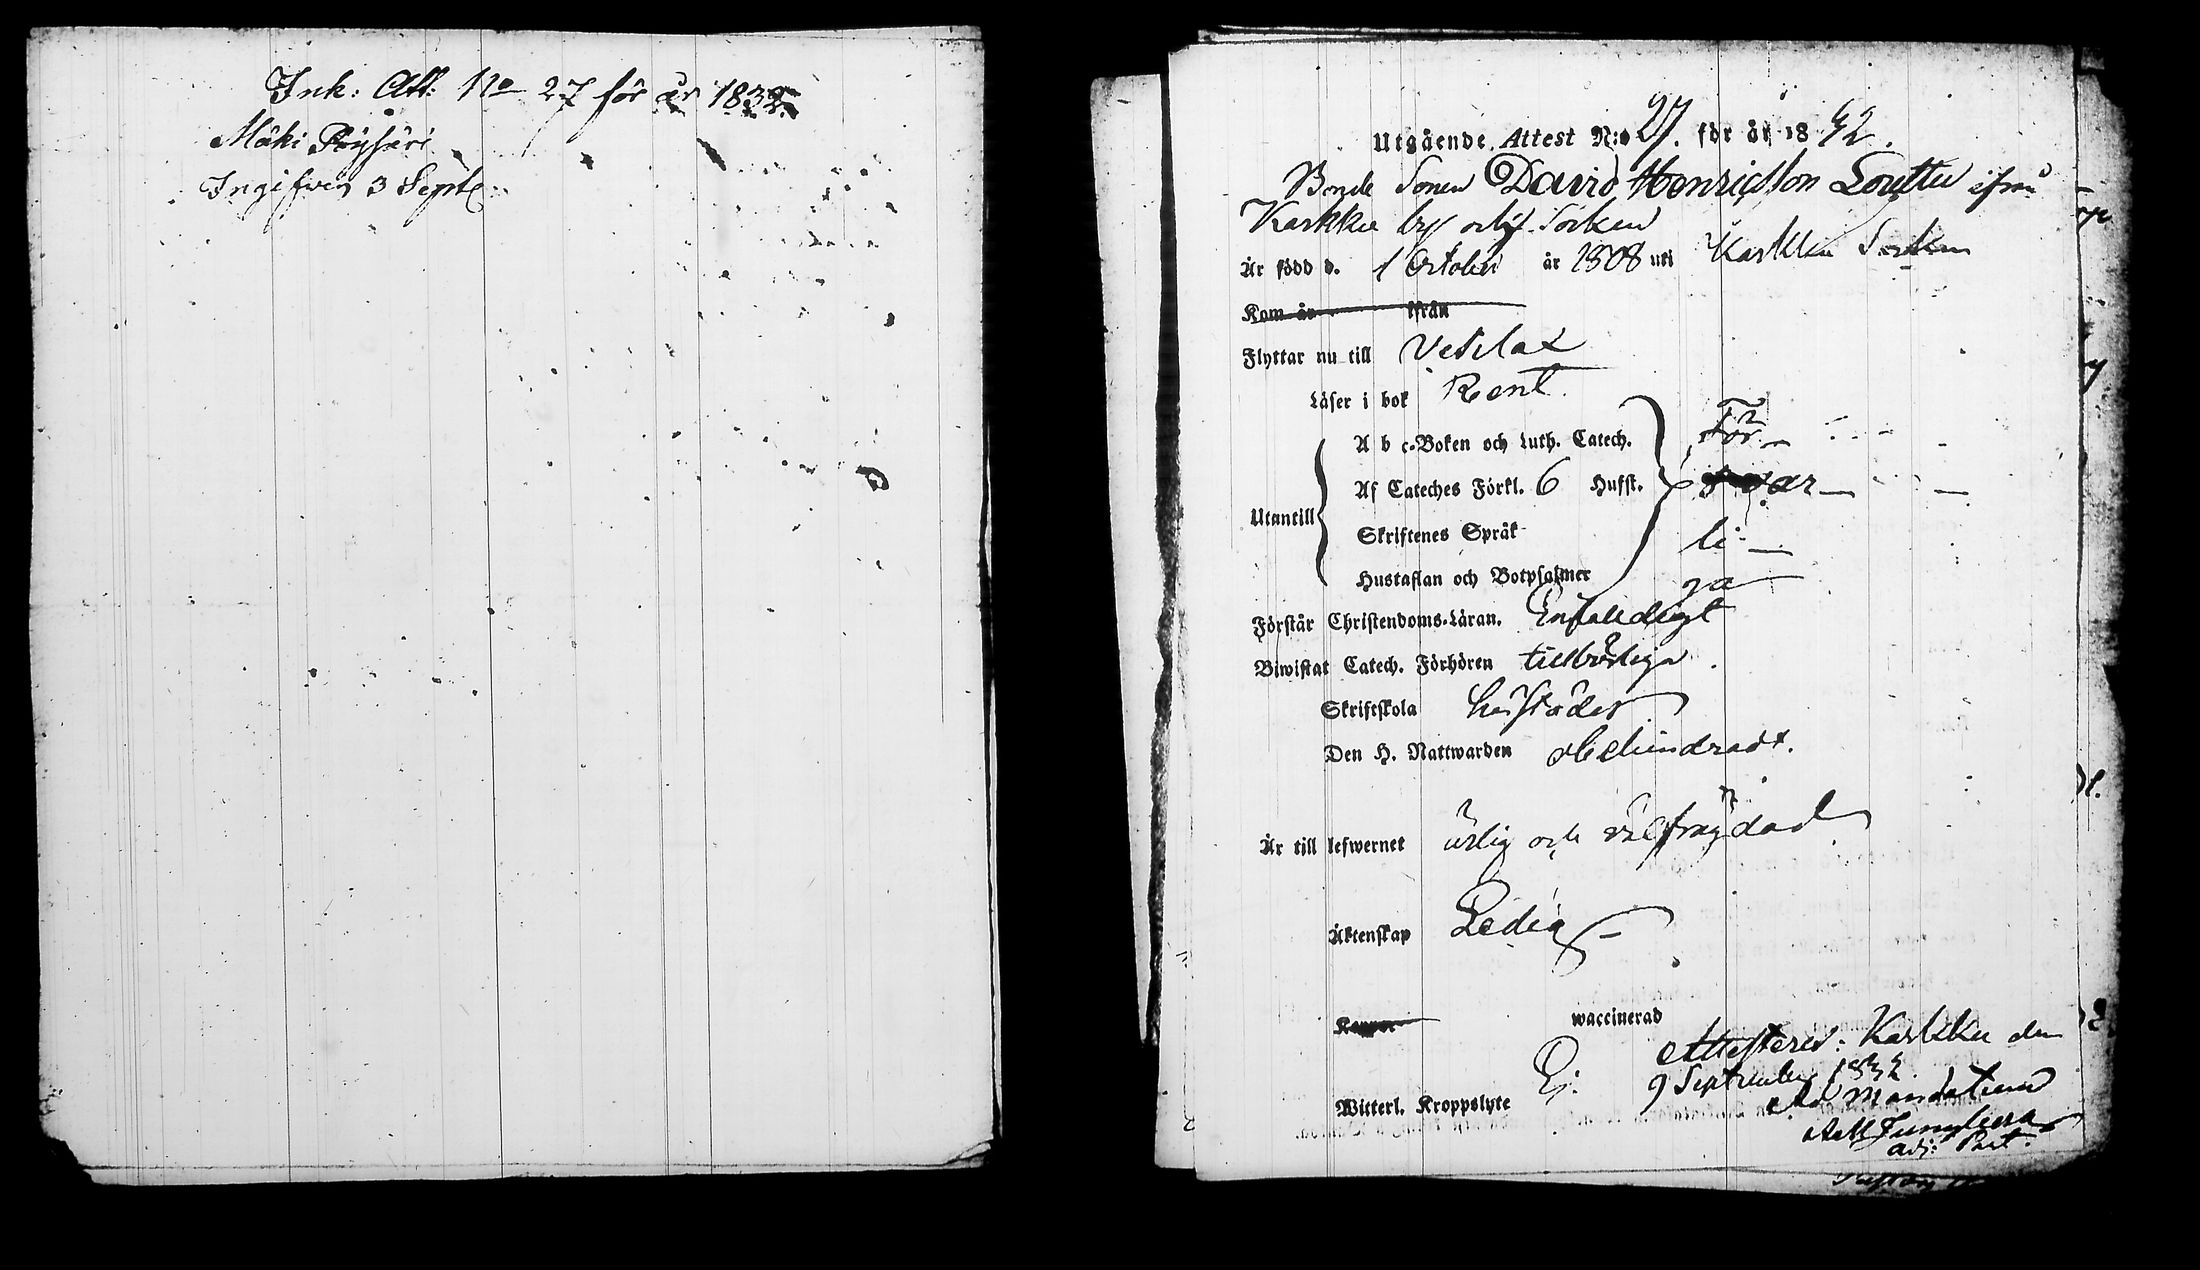 Ink: Att: No 27 för år 1832.
Mäki Röyhäri
Ingifven 3 Sept.
Utgående Attest N:o 27. för år 1832.
Bonde Sonen David Henricsson Louttu ifrån
Karkku by och Socken
Är född d. 1 October år 1808 uti Karkku Socken
Kom år ifrån
Flyttar nu till Vesilax
Läser i bok Rent.
A b c-Boken och Luth. Catech. För
Af Cateches Förkl. 6 Hufst. svar
Utantill
Skriftenes Språk li
Hustaflan och Botpsalmer ga
Förstår Christendoms-Läran. Enfaldigt
Biwistat Catech. Förhören tillbörliga.
Skriftskola
Den H. Nattwarden obehindradt.
Är till lefwernet ärlig och välfrägdad
Äktenskap Ledig
Koppor waccinerad
Witterl. Kroppslyte Ej.
Attesteras: Karkku den
9 September 1832
Ad Mandatum
adj: Past.